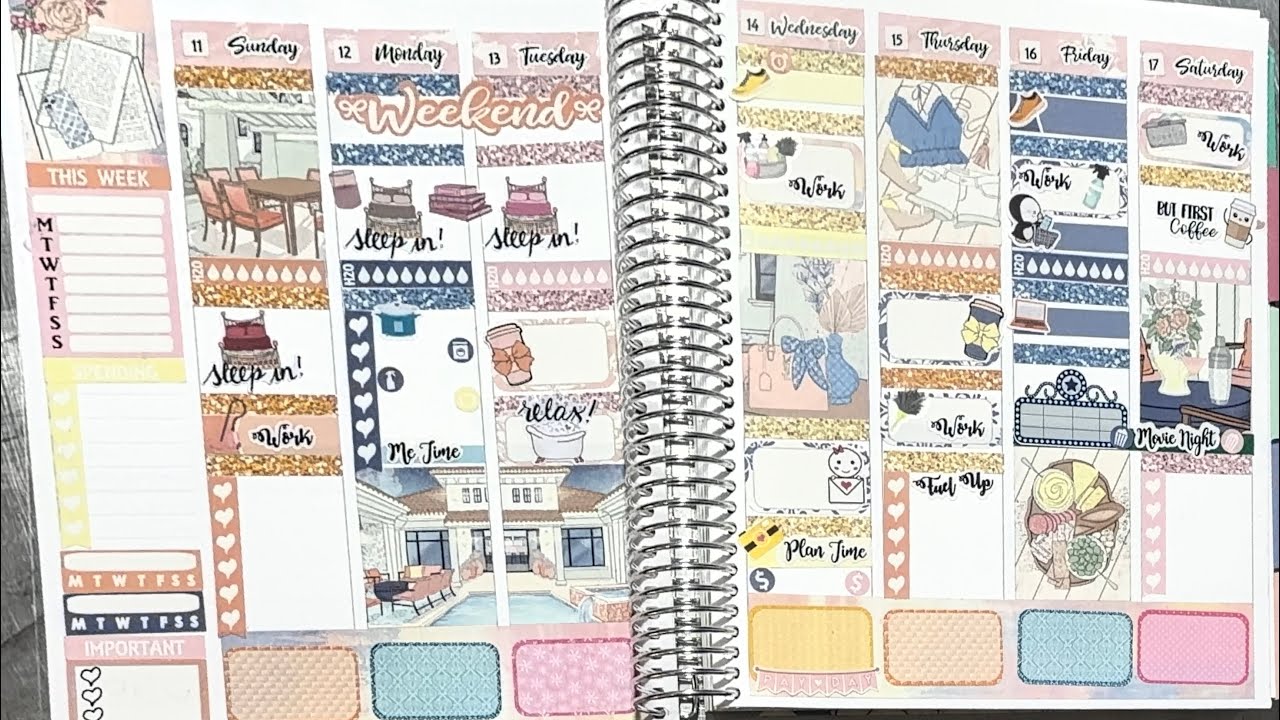 THIS WEEK
M
T
W
T
F
S
S
SPENDING
M T W T F S S
M T W T F S S
IMPORTANT
11 Sunday
sleep in!
Work
12 Monday
13 Tuesday
Weekend
sleep in!
sleep in!
H2O
H2O
H2O
relax!
Me Time
14 Wednesday
Work
Plan Time
PAY DAY
15 Thursday
H2O
Work
Fuel Up
16 Friday
Work
H2O
17 Saturday
Work
BUT FIRST
Coffee
Movie Night